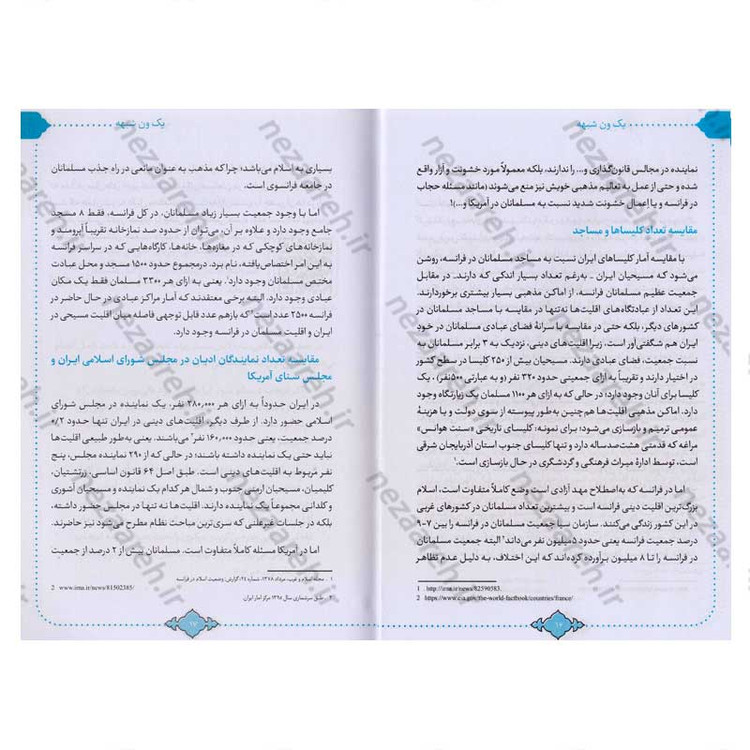 یک ون شبهه
نماینده در مجالس قانون‌گذاری و... را ندارند، بلکه معمولاً مورد خشونت و آزار واقع
شده و حتی از عمل به تعالیم مذهبی خویش نیز منع می‌شوند (مانند مسئله حجاب
در فرانسه و یا اِعمال خشونت شدید نسبت به مسلمانان در آمریکا و...)!
مقایسه تعداد کلیساها و مساجد
با مقایسه آمار کلیساهای ایران نسبت به مساجد مسلمانان در فرانسه، روشن
می‌شود که مسیحیان ایران ـ به‌رغم تعداد بسیار اندکی که دارند ـ در مقابل
جمعیت عظیم مسلمانان فرانسه، از اماکن مذهبی بسیار بیشتری برخوردارند.
این تعداد از عبادتگاه‌های اقلیت‌ها نه‌تنها در مقایسه با مساجد مسلمانان در
کشورهای دیگر، بلکه حتی در مقایسه با سرانهٔ فضای عبادی مسلمانان در خود
ایران هم شگفتی‌آور است. زیرا اقلیت‌های دینی، نزدیک به ۳ برابر مسلمانان به
نسبت جمعیت، فضای عبادی دارند. مسیحیان بیش از ۲۵۰ کلیسا در سطح کشور
در اختیار دارند و تقریباً به ازای جمعیتی حدود ۳۲۰ نفر (و به عبارتی ۵۰۰نفر)، یک
کلیسا برای آنان وجود دارد؛ در حالی که به ازای هر ۱۱۰۰ مسلمان یک زیارتگاه وجود
دارد. اماکن مذهبی اقلیت‌ها هم‌چنین به‌طور پیوسته از سوی دولت و با هزینهٔ
عمومی ترمیم و بازسازی می‌شود؛ برای نمونه: کلیسای تاریخی «سنت هوانس»
مراغه که قدمتی هشت‌صدساله دارد و تنها کلیسای جنوب استان آذربایجان شرقی
است، توسط ادارهٔ میراث فرهنگی و گردشگری در حال بازسازی است.۱
اما در فرانسه که به‌اصطلاح مهد آزادی است وضع کاملاً متفاوت است، اسلام
بزرگ‌ترین اقلیت دینی فرانسه است و بیشترین تعداد مسلمانان در کشورهای غربی
در این کشور زندگی می‌کنند. سازمان سیا جمعیت مسلمانان در فرانسه را بین ۷-۹
درصد جمعیت فرانسه یعنی حدود ۵میلیون نفر می‌داند۲؛ البته جمعیت مسلمانان
در فرانسه را تا ۸ میلیون برآورده کرده‌اند که این اختلاف، به دلیل عدم تظاهر
1 http://irna.ir/news/82590583.
2 https://www.cia.gov/the-world-factbook/countries/france/
۱۶
یک ون شبهه
بسیاری به اسلام می‌باشد؛ چراکه مذهب به عنوان مانعی در راه جذب مسلمانان
در جامعه فرانسوی است.
اما با وجود جمعیت بسیار زیاد مسلمانان، در کل فرانسه، فقط ۸ مسجد
جامع وجود دارد و علاوه بر آن، می‌توان از حدود صد نمازخانه تقریباً آبرومند و
نمازخانه‌های کوچکی که در مغازه‌ها، خانه‌ها، کارگاه‌هایی که در سراسر فرانسه
به این امر اختصاص‌یافته، نام برد. درمجموع حدود ۱۵۰۰ مسجد و محل عبادت
مختص مسلمانان وجود دارد.۱ یعنی به ازای هر ۳۳۰۰ مسلمان فقط یک مکان
عبادی وجود دارد. البته برخی معتقدند که آمار مراکز عبادی در حال حاضر در
فرانسه ۲۵۰۰ عدد است۲ که بازهم عدد قابل توجهی فاصله میان اقلیت مسیحی در
ایران و اقلیت مسلمان در فرانسه وجود دارد.
مقایسه تعداد نمایندگان ادیان در مجلس شورای اسلامی ایران و
مجلس سنای آمریکا
در ایران حدوداً به ازای هر ۲۸۰,۰۰۰ نفر، یک نماینده در مجلس شورای
اسلامی حضور دارد. از طرف دیگر، اقلیت‌های دینی در ایران تنها حدود ۰/۲
درصد جمعیت، یعنی حدود ۱۶۰,۰۰۰ نفر۳ می‌باشند. یعنی به‌طور طبیعی اقلیت‌ها
نباید حتی یک نماینده داشته باشند؛ در حالی که از ۲۹۰ نماینده مجلس، پنج
نفر مربوط به اقلیت‌های دینی است. طبق اصل ۶۴ قانون اساسی، زرتشتیان،
کلیمیان، مسیحیان ارمنی جنوب و شمال هر کدام یک نماینده و مسیحیان آشوری
و کلدانی مجموعاً یک نماینده دارند. اقلیت‌ها نه تنها در مجلس حضور داشته،
بلکه در جلسات غیرعلنی که سری‌ترین مباحث نظام مطرح می‌شود نیز حاضرند.
اما در آمریکا مسئله کاملاً متفاوت است. مسلمانان بیش از ۲ درصد از جمعیت
۱ . مجله اسلام و غرب، مرداد ۱۳۷۸، شماره ۲۴، گزارش: وضعیت اسلام در فرانسه
2 www.irna.ir/news/81502385/
۳ . طبق سرشماری سال ۱۳۹۵ مرکز آمار ایران.
۱۷
nezaareh.ir